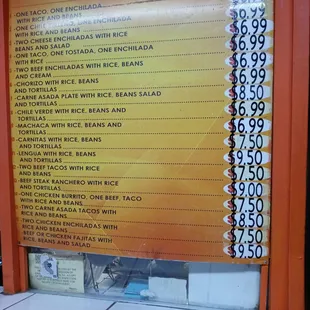 -ONE TACO, ONE ENCHILADA
WITH RICE AND BEANS
$6.99
-ONE CHILE ENCHILADA
WITH RICE AND BEANS
$6.99
-TWO CHEESE ENCHILADAS WITH RICE
BEANS AND SALAD
$6.99
-ONE TACO, ONE TOSTADA, ONE ENCHILADA
WITH RICE
$6.99
-TWO BEEF ENCHILADAS WITH RICE, BEANS
AND CREAM
$6.99
-CHORIZO WITH RICE, BEANS
AND TORTILLAS
$6.99
-CARNE ASADA PLATE WITH RICE, BEANS SALAD
AND TORTILLAS
$8.50
-CHILE VERDE WITH RICE, BEANS AND
TORTILLAS
$6.99
-MACHACA WITH RICE, BEANS AND
TORTILLAS
$6.99
-CARNITAS WITH RICE, BEANS
AND TORTILLAS
$7.50
-LENGUA WITH RICE, BEANS
AND TORTILLAS
$9.50
-TWO BEEF TACOS WITH RICE
AND BEANS
$7.50
-BEEF STEAK RANCHERO WITH RICE
AND TORTILLAS
$9.00
-ONE CHICKEN BURRITO, ONE BEEF, TACO
WITH RICE AND BEANS
$7.50
-TWO CARNE ASADA TACOS WITH
RICE AND BEANS
$8.50
-TWO CHICKEN ENCHILADAS WITH
RICE AND BEANS
$7.50
BEEF OR CHICKEN FAJITAS WITH
RICE, BEANS AND SALAD
$9.50